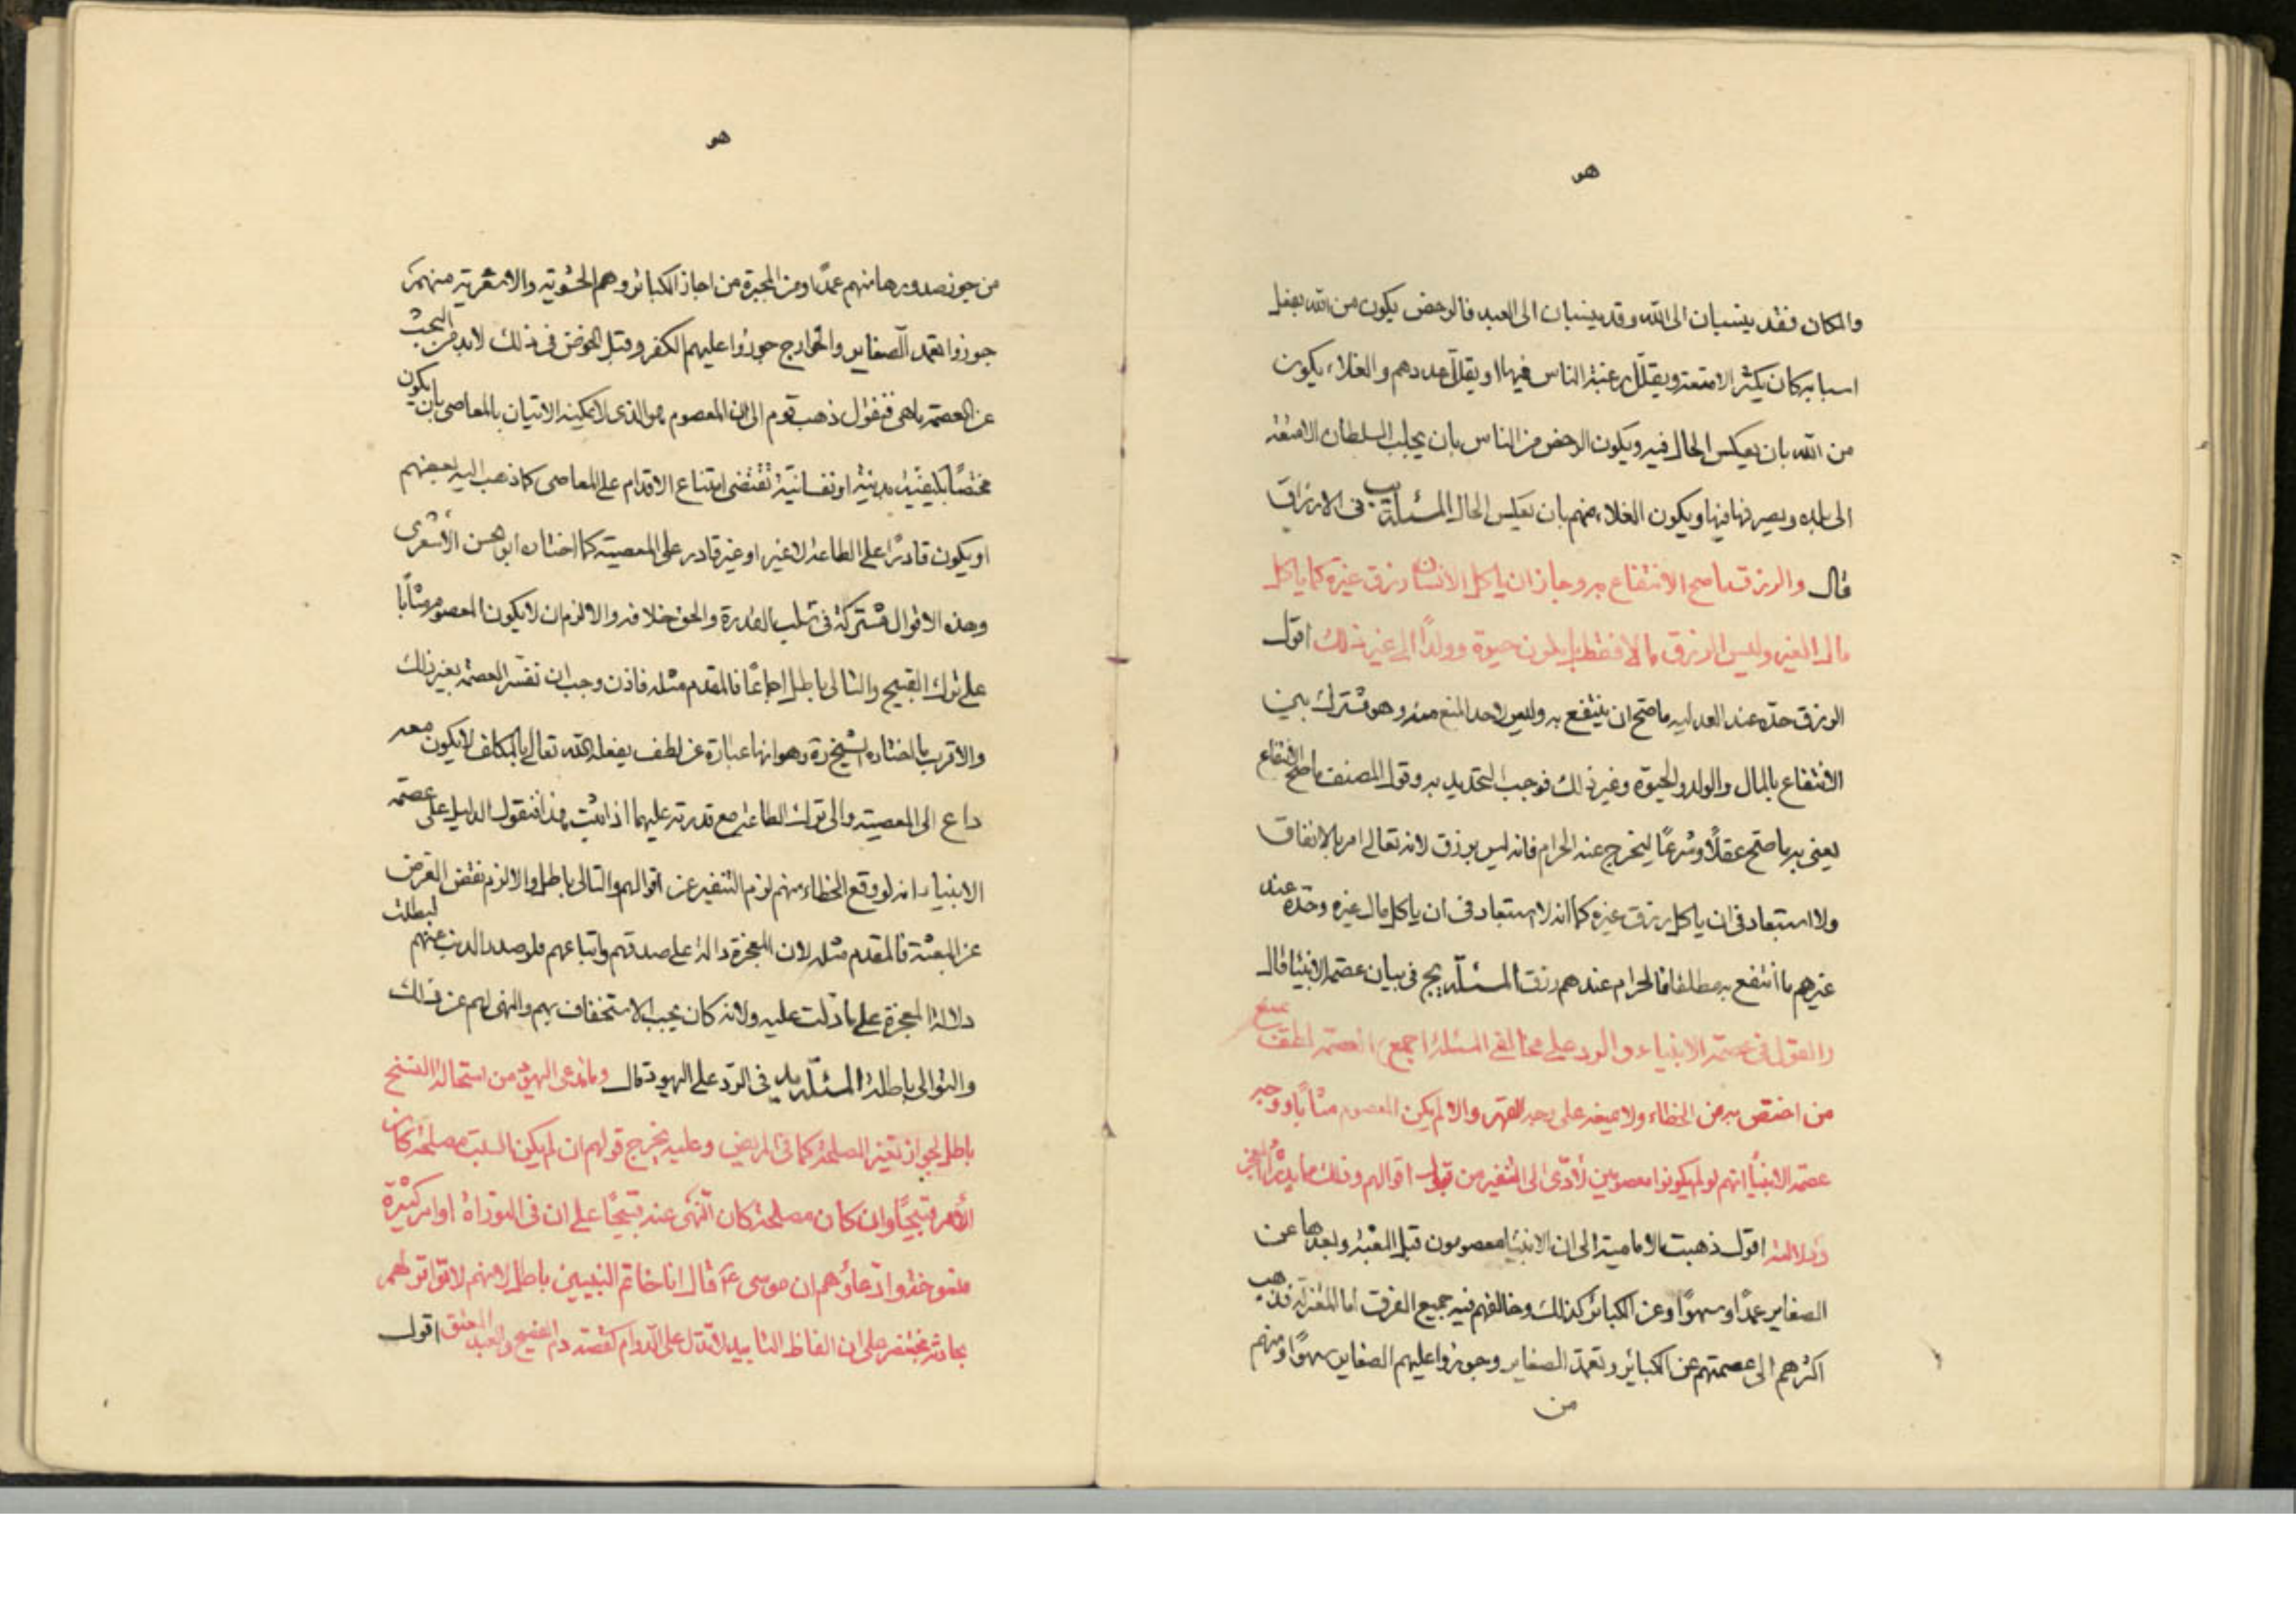 هو
والمكان فقد ينسبان الى الله وقد ينسبان الى العبد فالرخص يكون من الله بفعل
اسبابه كان يكثر الامتعة ويقلل رغبة الناس فيها او يقلل عددهم والغلاء يكون
من الله بان يعكس الحال فيه ويكون الرخص من الناس بان يجلب السلطان الامتعة
الى بلده ويصرفها فيها ويكون الغلاء منهم بان يعكس الحال المسئلة يب فى الارزاق
قال والرزق ما صح الانتفاع به وجاز ان ياكل الانسان رزق غيره كما ياكل
مال الغير وليس الرزق مالا فقط بل يكون حيوة وولدًا الى غير ذلك اقول
الرزق حدّه عند العدليه ما صح ان ينتفع به وليس لاحد المنع منه وهو مشترك بين
الانتفاع بالمال والولد والحيوة وغير ذلك فوجب التحديد به وقول المصنف ما صح الانتفاع
يعنى به ما صح عقلًا وشرعًا ليخرج عنه الحرام فانه ليس برزق لانه تعالى امر بالانفاق
ولا استبعاد فى ان ياكل رزق غيره كما انه لا استبعاد فى ان ياكل مال غيره وحدّه عند
غيرهم ما انتفع به مطلقا فالحرام عندهم رزق المسئلة يج فى بيان عصمة الانبيا قال
والقول فى عصمة الانبياء والرد على مخالفى المسئلة اجمع العصمة لطف يمنع
من اختص به من الخطاء ولا يمنعه على وجه القهر والا لم يكن المعصوم مثابًا ووجه
عصمة الانبيا انهم لو لم يكونوا معصومين لأدّى الى التنفير من قبول اقوالهم وذلك
ودلالته اقول ذهبت الامامية الى ان الانبيا معصومون قبل البعثة وبعدها عن
الصغاير عمدًا وسهوًا وعن الكبائر كذلك وخالفهم فيه جميع الفرق اما المعتزلة فذهب
اكثرهم الى عصمتهم عن الكبائر وتعمد الصغاير وجوزوا عليهم الصغاير سهوًا ومنهم
من
هو
من جوز صدورها منهم عمدًا ومن المجبرة من اجاز الكبائر وهم الحشوية والاشعرية منهم
جوزوا تعمد الصغاير والخوارج جوزوا عليهم الكفر وقبل الخوض فى ذلك لابد من البحث
عن العصمة ما هى فنقول ذهب قوم الى ان المعصوم هو الذى لا يمكنه الاتيان بالمعاصى بان يكون
مختصًا بكيفية بدنية او نفسانية تقتضى امتناع الاقدام على المعاصى كما ذهب اليه بعضهم
او يكون قادرًا على الطاعة لا غير او غير قادر على المعصية كما اختاره ابو الحسن الأشعرى
وهذه الاقوال مشتركة فى سلب القدرة والحق خلافه والا لزم ان لا يكون المعصوم مثابًا
على ترك القبيح والتالى باطل اجماعًا فالمقدم مثله فاذن وجب ان تفسر العصمة بغير ذلك
والاقرب ما اختاره الشيخ ره وهو انها عبارة عن لطف يفعله الله تعالى بالمكلف لا يكون معه
داع الى المعصية والى ترك الطاعة مع قدرته عليهما اذا ثبت هذا فنقول الدليل على عصمة
الانبياء انه لو وقع الخطاء منهم لزم التنفير عن اقوالهم والتالى باطل والا لزم نقض الغرض
عن البعثة فالمقدم مثله لان المعجزة دالة على صدقهم واتباعهم فلو صدر الذنب عنهم لبطلت
دلالة المعجزة على ما دلت عليه ولانه كان يجب الاستخفاف بهم والنهى لهم عن ذلك
والتوالى باطلة المسئلة يد فى الردّ على اليهود قال وما تدعى اليهود من استحالة النسخ
باطل لجواز تغير المصلحة كما فى المريض وعليه يخرج قولهم ان لم يكن السبت مصلحة كان
الأمر قبيحًا وان كان مصلحة كان النهى عنه قبيحًا على ان فى التوراة اوامر كثيرة
منسوخة وادعاؤهم ان موسى ع قال انا خاتم النبيين باطل لانهم لا تواتر لهم
بحادثة بختنصر على ان الفاظ التابيد لا تدل على الدوام كقصة دم الفصح والعبد المعتق اقول